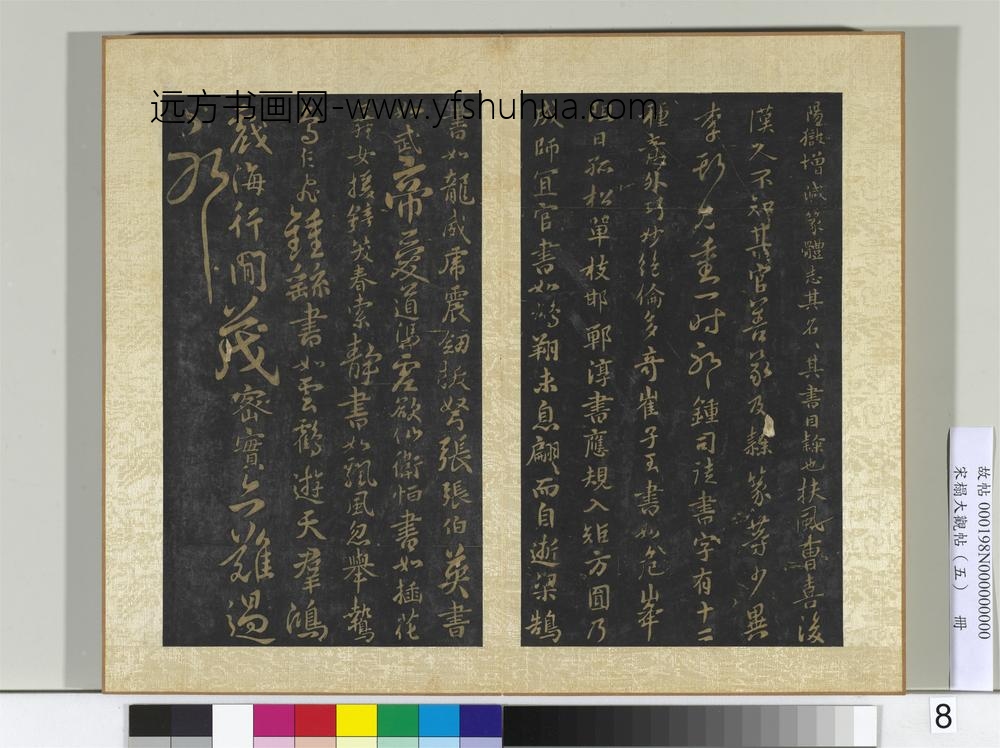 远方书画网-www.yfshuhua.com
隱嶽增減篆體志其名、其書曰隸也扶風曹喜後
漢人不知其官善篆及隸篆等少異
李斯見重一時 鍾司徒書字有十二
種意外巧妙絕倫多奇崔子玉書如危峯
日孤松單枝邯鄲淳書應規入矩方圓乃
成師宜官書如鵬翔未息翩翩而自逝梁鵠
書如龍威虎震劒拔弩張張伯英書
武帝愛道馮虛欲仙衛恒書如插花
女援鏡笑春索靖書如飄風忽舉鷙
鳥乍飛鍾繇書如雲鶴遊天群鴻
戲海行間茂密實亦難過
故帖000198N000000000
宋榻大觀帖（五） 冊
8